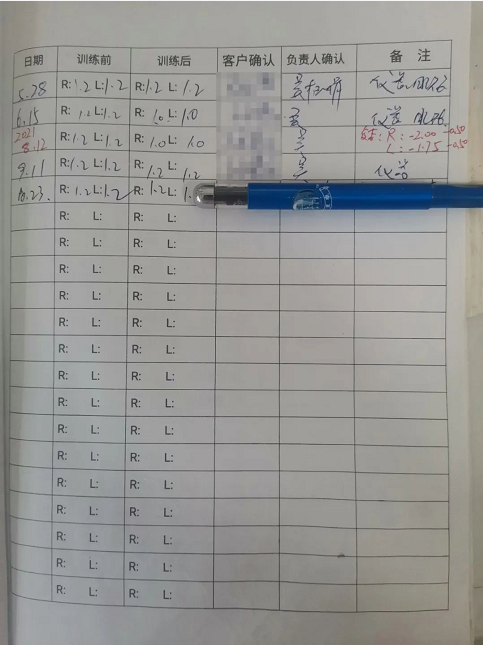 日期 训练前 训练后 客户确认 负责人确认 备 注
5.28 R:1.2 L:1.2 R:1.2 L:1.2 仪器
6.15 R: 1.2 L:1.2 R: 1.0 L:1.0
2021
8.12 R:1.2 L:1.2 R: 1.0 L: 1.0 R: -2.00 -0.50
L: -1.75 -0.50
9.11 R:1.2 L:1.2 R: 1.2 L: 1.2 仪器
10.23. R:1.2 L:1.2 R: 1.2 L:
R: L: R: L:
R: L: R: L:
R: L: R: L:
R: L: R: L:
R: L: R: L:
R: L: R: L:
R: L: R: L:
R: L: R: L:
R: L: R: L:
R: L: R: L:
R: L: R: L:
R: L: R: L:
R: L: R: L:
R: L: R: L:
R: L: R: L: